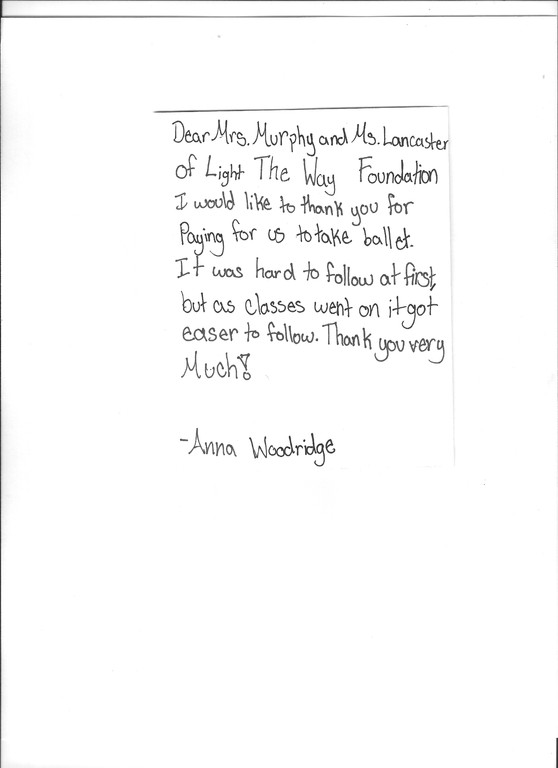 Dear Mrs. Murphy and Ms. Lancaster
of Light The Way Foundation
I would like to thank you for
Paying for us to take ballet.
It was hard to follow at first,
but as classes went on it got
easer to follow. Thank you very
Much!
-Anna Woodridge